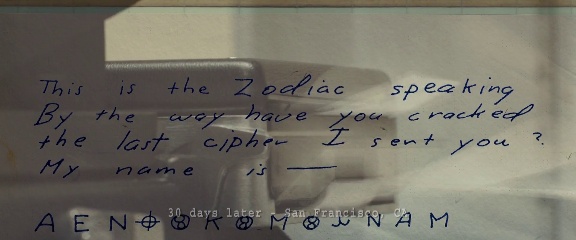 This is the Zodiac speaking
By the way have you cracked
the last cipher I sent you ?
My name is —
30 days later San Francisco, CA
A E N ⌖ ⊗ K ⊗ M ⊗ ⟓ N A M